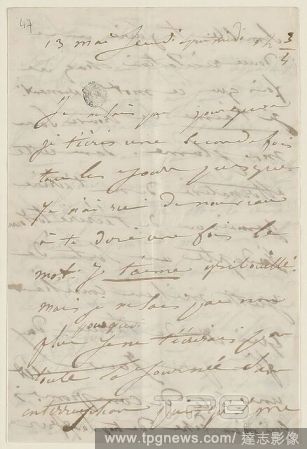 47
13 mai Jeudi après midi 4h 3/4
Je ne sais pas pourquoi
je t'écris une seconde fois
tous les jours puisque
je n'ai rien de nouveau
à te dire une fois le
mot je t'aime
mais je ne sais pas non
plus pourquoi je ne t'écrirais pas
toute la journée sans
interruption puisque
www.tpgnews.com/達志影像